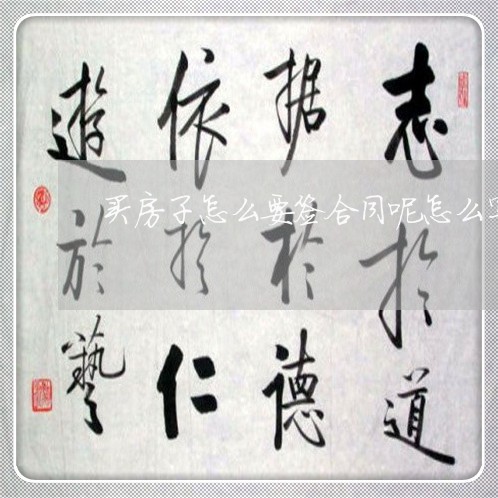 志於道
据於德
依於仁
遊於藝
买房子怎么要签合同呢怎么